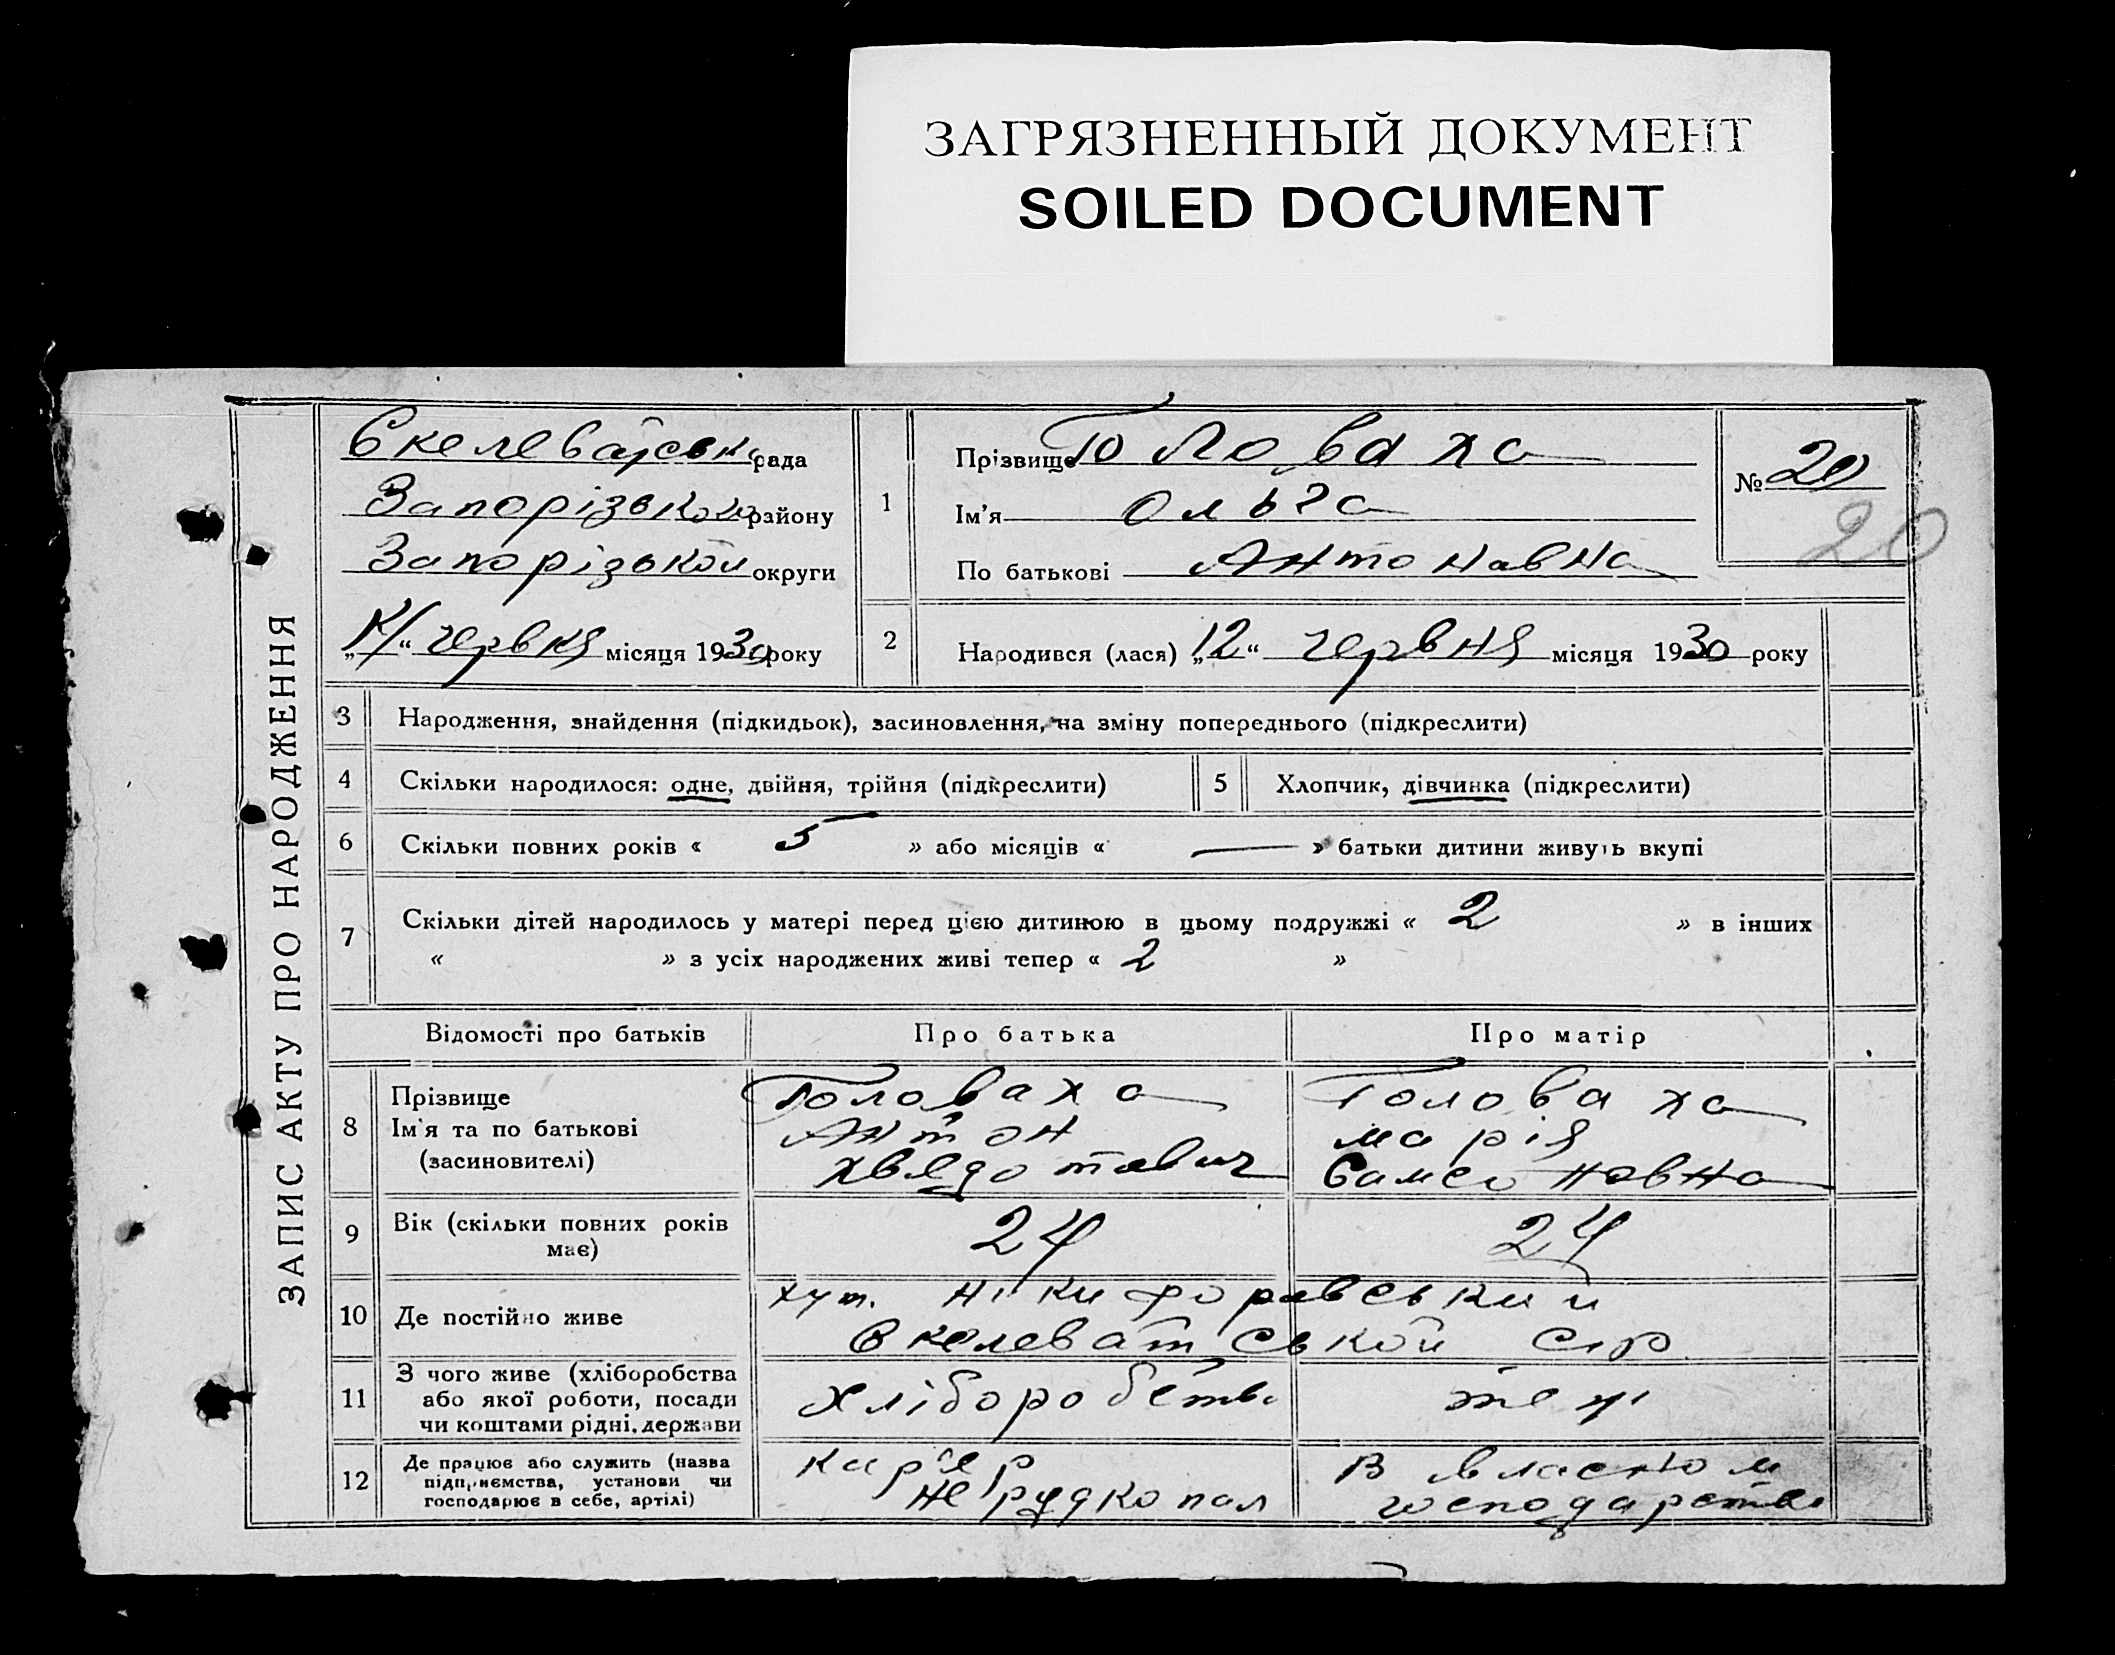 ЗАГРЯЗНЕННЫЙ ДОКУМЕНТ
SOILED DOCUMENT
ЗАПИС АКТУ ПРО НАРОДЖЕННЯ
Скелеватська рада
Запорізького району
Запорізької округи
„ “ червня місяця 1930 року
1
Прізвище Головаха
Ім’я Ольга
По батькові Антонавна
№ 20
20
2
Народився (лася) „12“ червня місяця 1930 року
3 Народження, знайдення (підкидьок), засиновлення, на зміну попереднього (підкреслити)
4 Скільки народилося: одне, двійня, трійня (підкреслити) 5 Хлопчик, дівчинка (підкреслити)
6 Скільки повних років « 5 » або місяців « — » батьки дитини живуть вкупі
7 Скільки дітей народилось у матері перед цією дитиною в цьому подружжі « 2 » в інших
« » з усіх народжених живі тепер « 2 »
Відомості про батьків Про батька Про матір
8
Прізвище Головаха Головаха
Ім'я та по батькові Антон Марія
(засиновителі) Хведотавич Самсонавна
9 Вік (скільки повних років має) 24 24
10 Де постійно живе хут. Нікифоравський
Скелеватської с/р
11 З чого живе (хліборобства
або якої роботи, посади хліборобство теж
чи коштами рідні, держави
12 Де працює або служить (назва кар'єр в власном
підприємства, установи чи господарстві
господарює в себе, артілі)